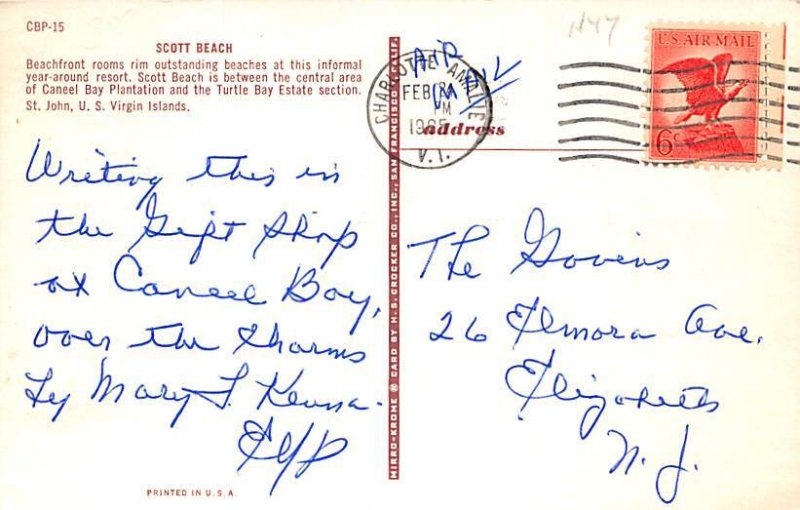 CBP-15
SCOTT BEACH
Beachfront rooms rim outstanding beaches at this informal
year-around resort. Scott Beach is between the central area
of Caneel Bay Plantation and the Turtle Bay Estate section.
St. John, U. S. Virgin Islands.
Writing this in
the Gift Shop
at Caneel Bay,
over the
by Mary
PRINTED IN U. S. A.
MIRRO-KROME ® CARD BY H. S. CROCKER CO., INC., SAN FRANCISCO
Air
CHARLOTTE AMALIE
FEB
PM
1965
V.I.
address
U.S. AIR MAIL
6¢
The Govens
26 Elmora Ave.
Elizabeth
N. J.